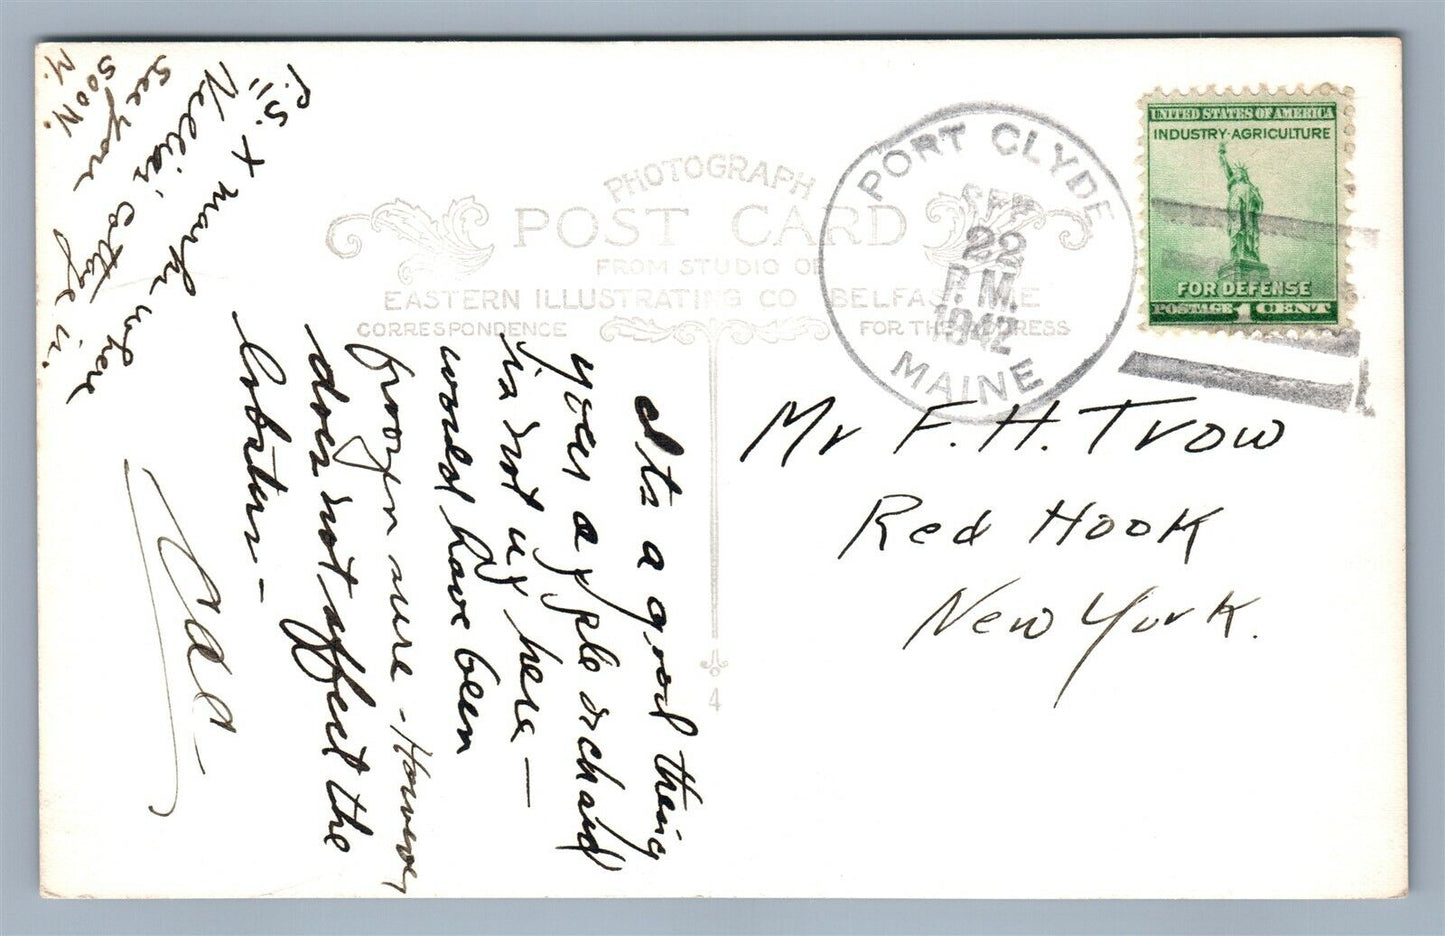 PHOTOGRAPH
POST CARD
FROM STUDIO OF
EASTERN ILLUSTRATING CO BELFAST, ME
CORRESPONDENCE
FOR THE ADDRESS
PORT CLYDE
SEP
22
P.M.
1942
MAINE
UNITED STATES OF AMERICA
INDUSTRY·AGRICULTURE
FOR DEFENSE
POSTAGE 1 CENT
Mr F. H. Trow
Red Hook
New York.
Its a good thing
your apple orchard
is not up here —
would have been
frozen sure - However
does not affect the
lobsters —
P.S. X marks where
Nellias cottage is.
See you
soon.
M.
4